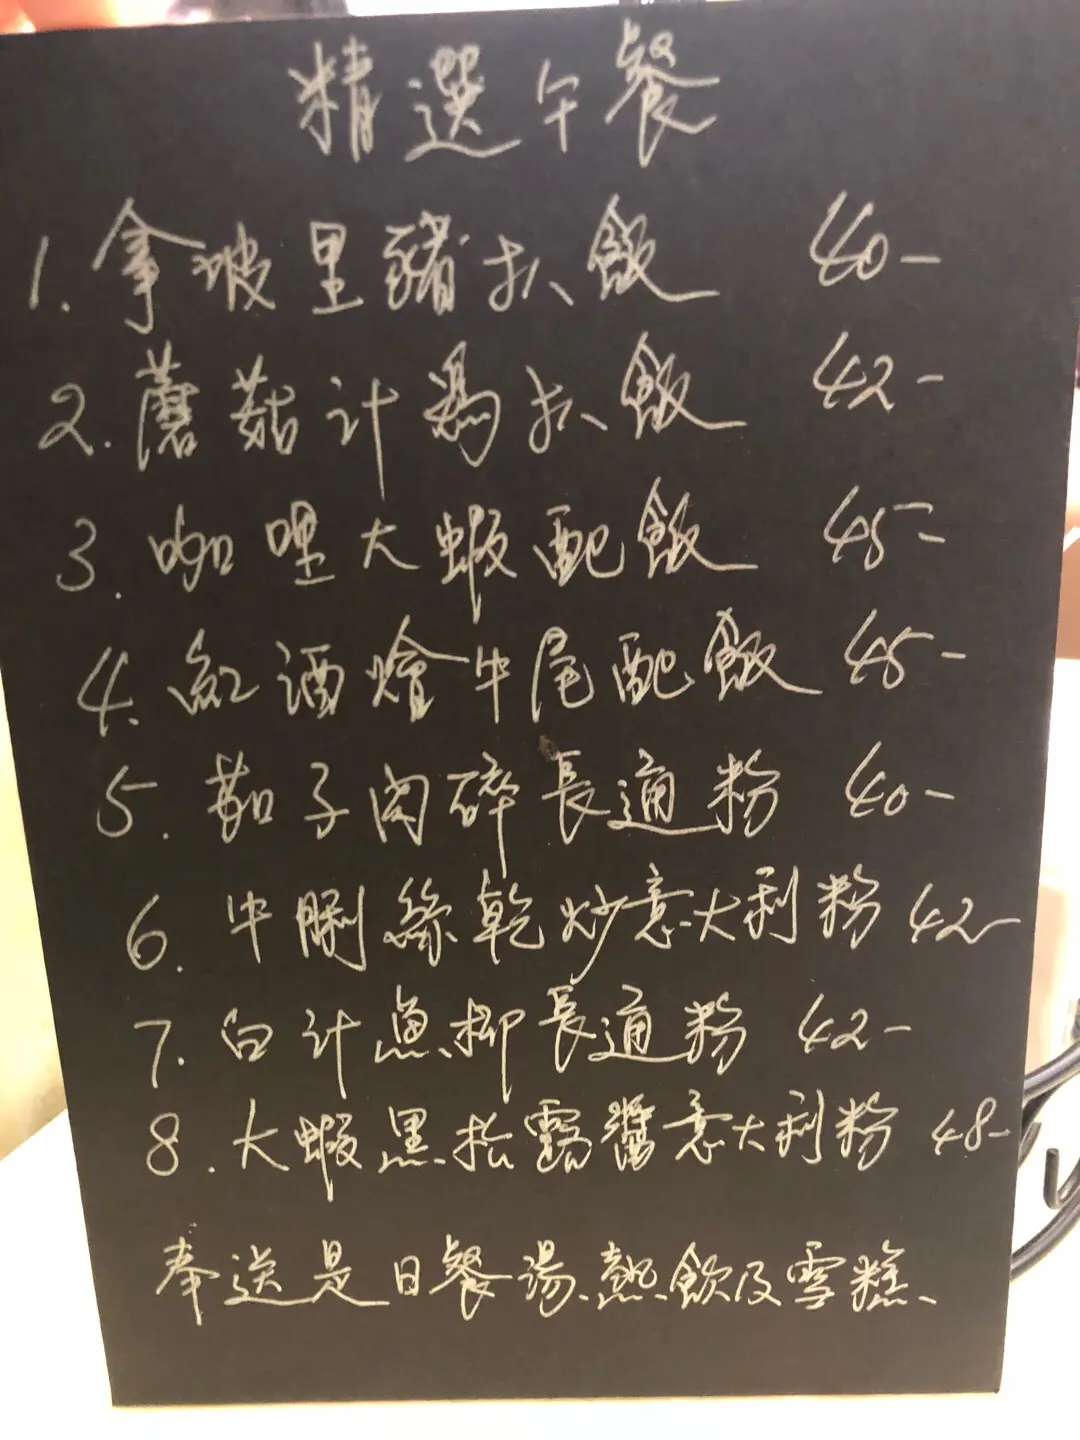 精選午餐
1. 拿坡里豬扒飯 40-
2. 蘑菇汁雞扒飯 42-
3. 咖喱大蝦配飯 45-
4. 紅酒燴牛尾配飯 45-
5. 茄子肉碎長通粉 40-
6. 牛脷絲乾炒意大利粉 42-
7. 白汁魚柳長通粉 42-
8. 大蝦黑松露醬意大利粉 48-
奉送是日餐湯、熱飲及雪糕、